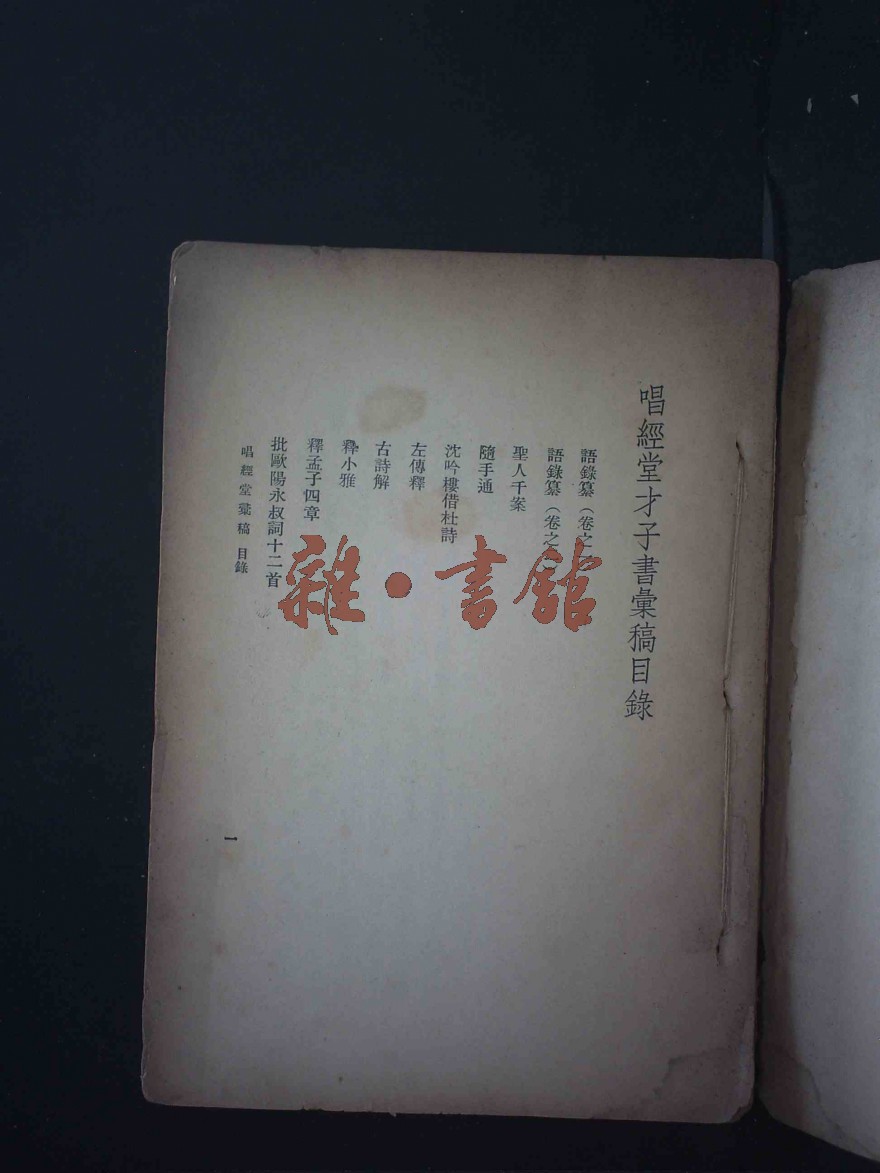 唱經堂才子書彙稿目錄
語錄纂（卷之
語錄纂（卷之
聖人千案
隨手通
沈吟樓借杜詩
左傳釋
古詩解
釋小雅
釋孟子四章
批歐陽永叔詞十二首
唱經堂彙稿 目錄
一
雜·書館